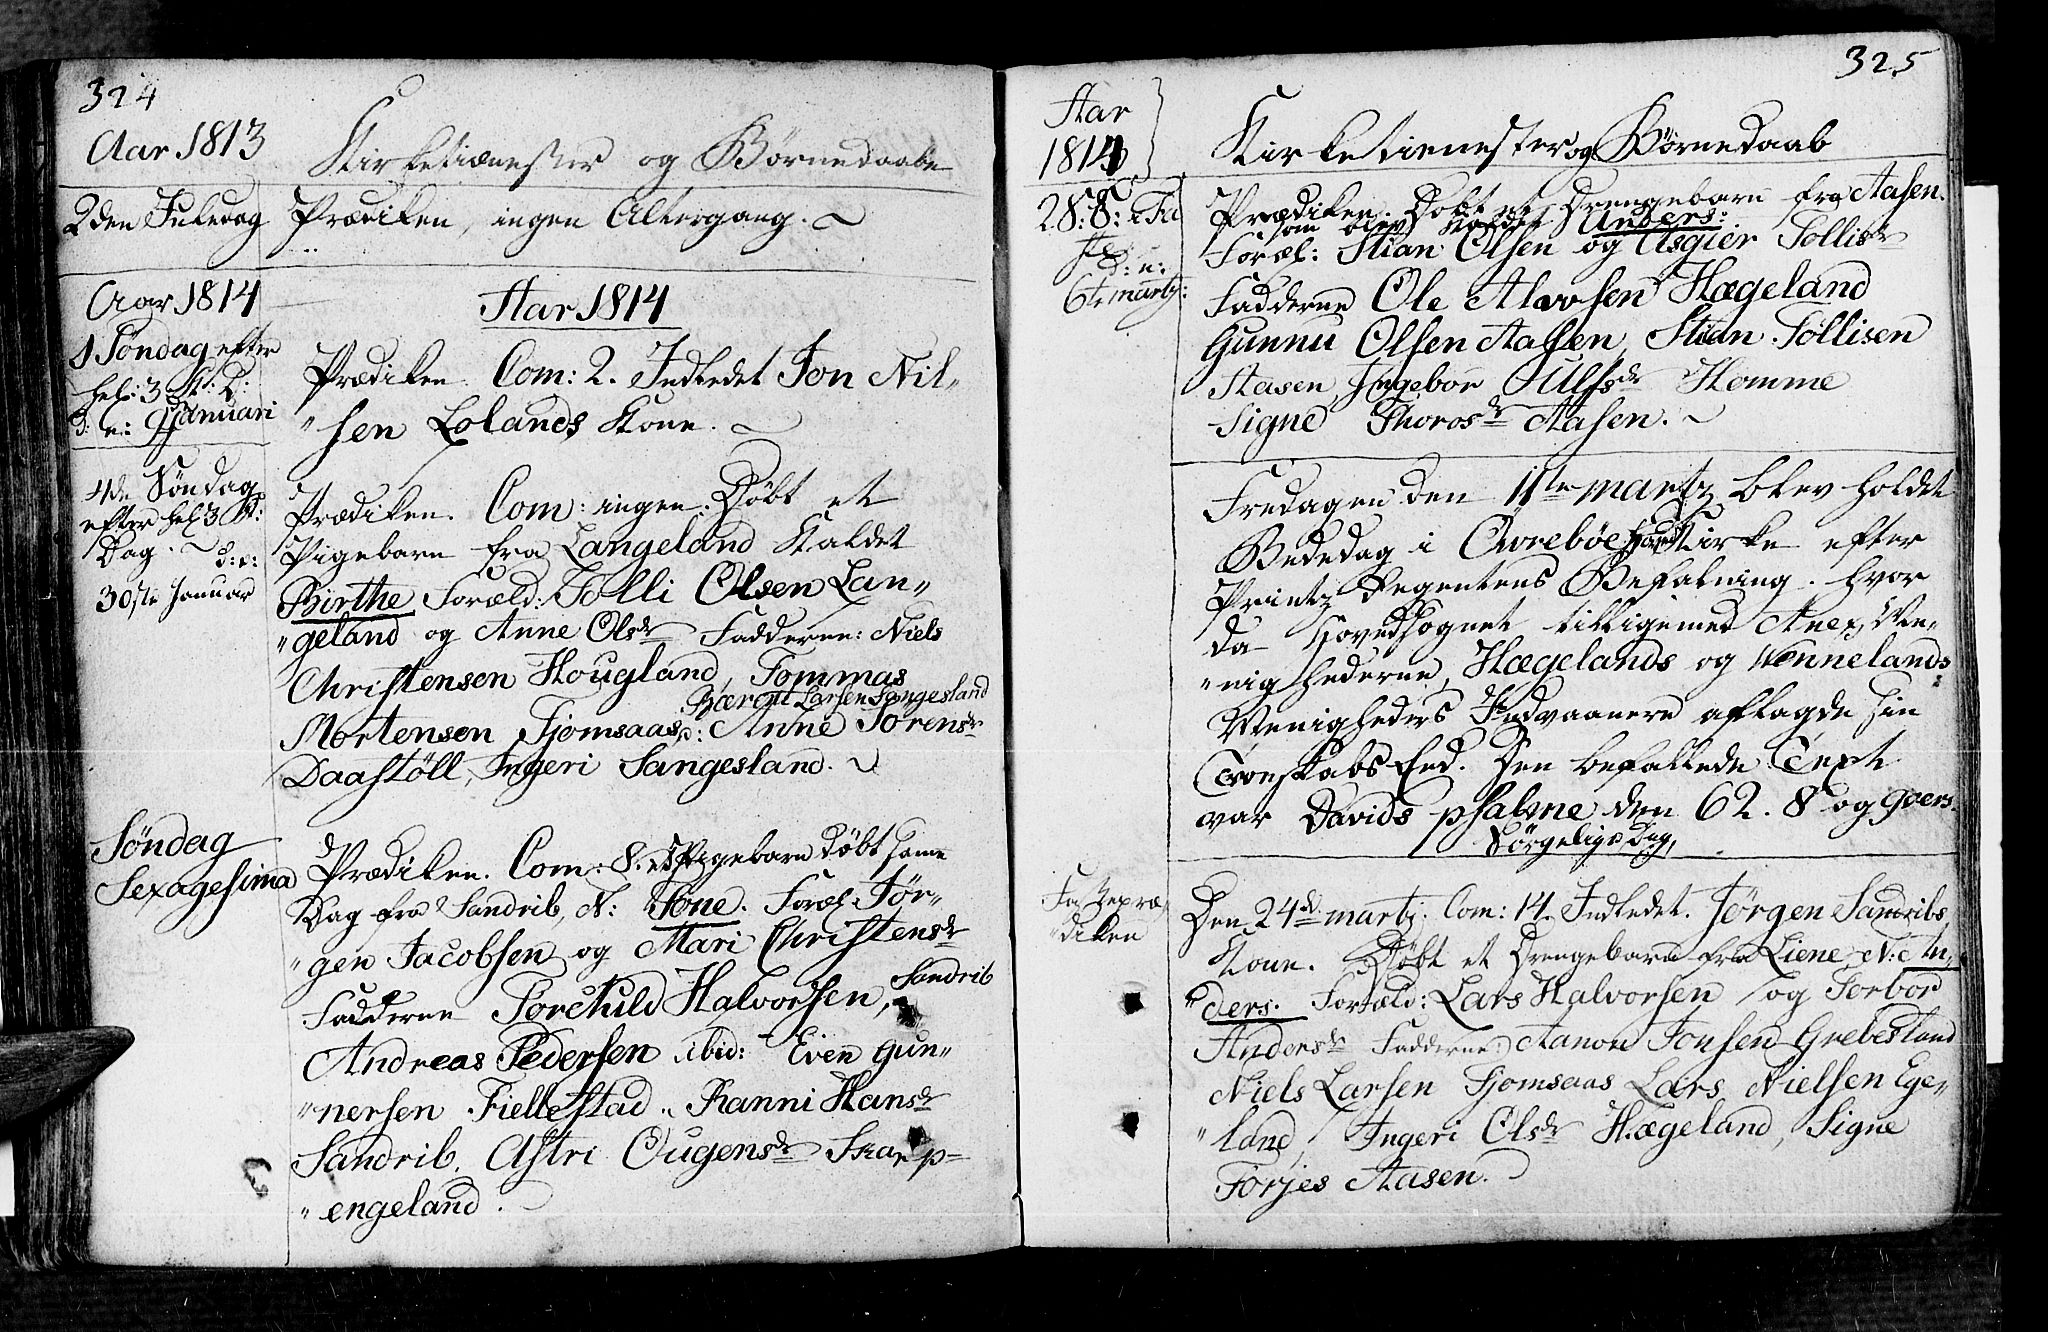 324
Aar 1813
Kirketiænester og Børnedaabe
2den Juledag
Prædiken, ingen Altergang.
Aar 1814
Aar 1814
1 Søndag efter
hel: 3 K: D:
d. e: 9 Januari
Prædiken. Com: 2. Indledet Jon Nil„
„sen Lolands Kone.
4de Søndag
efter hel 3 K:
Dag. d: e:
30ste Januar
Prædiken. Com: ingen. Døbt et
Pigebarn fra Langeland Kaldet
Birthe Foræld: Tolli Olsen Lan„
„geland og Anne Olsdr Fadderne: Niels
Christensen Hougland, Tommas
Bærent Larsen Sangesland
Mortensen Fjomsaas, Anne Sørensdr
Daastøll, Ingeri Sangesland.
Søndag
Sexagesima
Prædiken. Com: 8. et Pigebarn Døbt same
Dag fra Sandrib, N: Tone. Foræl: Jør„
„gen Jacobsen og Mari Christensdr
Sandrib
Fadderne Torchuld Halvorsen,
Andreas Pedersen ibid: Even Gun„
„nersen Fiellestad. Ranni Hansdr
Sandrib. Astri Ougensdr Skarp„
„engeland.
325
Aar
1814
Kirketienester og Børnedaab
28: 8: i Fa
ste
d: e:
6te martj:
Prædiken. Døbt et Drengebarn fra Aasen.
som blev kaldet Anders:
Foræl: Stian Olsen og Asgier Tollisdr
Fadderne Ole Alovsen Hægeland
Gunnu Olsen Aasen, Stian Tollisen
Aasen, Ingebor Ulfsdr Homme
Signe Thorosdr Aasen.
Fredagen den 11te martz blev holdet
Bededag i Øvrebøe Hoved Kirke efter
Printz Regentens Befalning. hvor
da Hovedsognet tilligemed Anex Me„
„nighederne, Hægelands og Wennelands
Menigheders Indvaanere aflagde sin
Troeskabs Eed. Den befallede Text
var Davids psalme den 62. 8 og 9vers.
Sørgelig Dag,
Fastepræ„
„diken
Den 24de martj. Com: 14. Indledet. Jørgen Sandribs
Kone. Døbt et Drengebarn fra Liene N: An„
„ders. Foræld: Lars Halvorsen og Torbor
Andersdr Fadderne Aanon Jonsen Grebesland
Niels Larsen Fjomsaas Lars Nielsen Ege„
„land, Ingeri Olsdr Hægeland, Signe
Torjes Aasen.